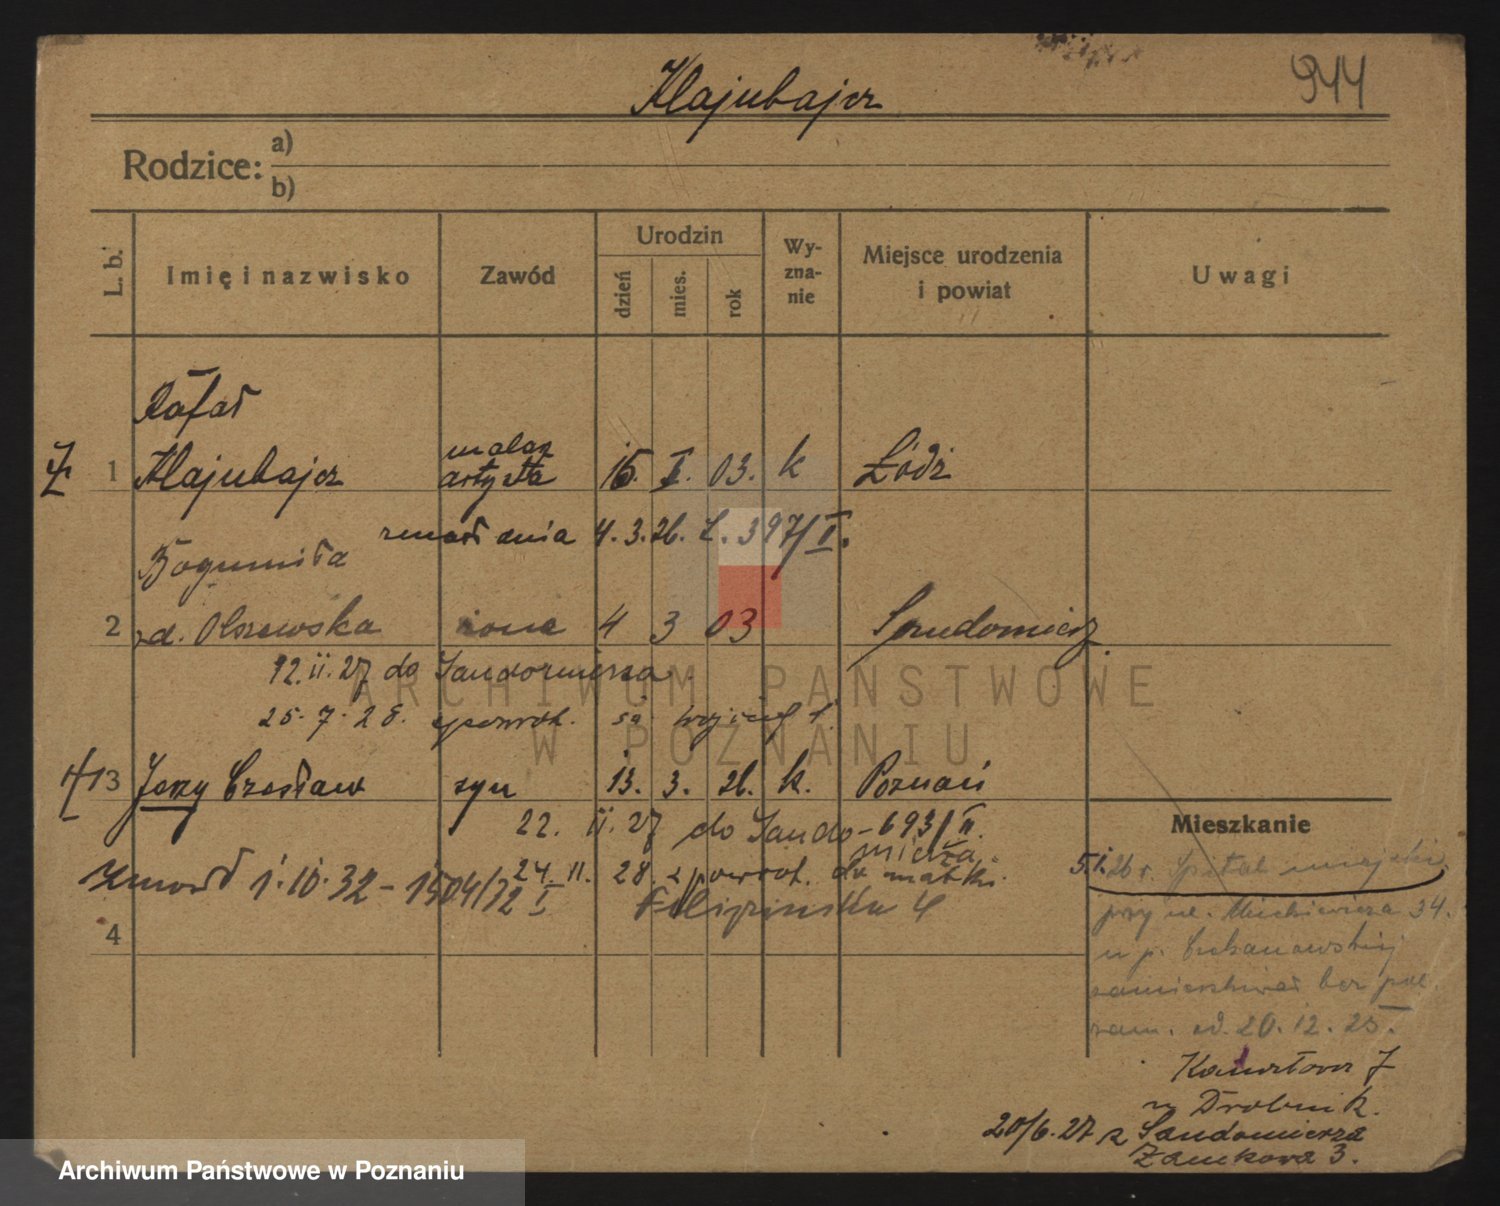 Klajubajcz
944
Rodzice:
a)
b)
L. b.
Imię i nazwisko
Zawód
Urodzin
dzień
mies.
rok
Wy-
zna-
nie
Miejsce urodzenia
i powiat
Uwagi
Rafał
1 Klajubajcz
malarz
artysta
15. I. 03. k Łódź
zmarł dnia 4. 3. 26. L. 397/I.
Bogumiła
2 zd. Olszewska żona 4 3 03 Sandomierz
12.II.27 do Sandomierza
25. 7. 28. spowrot.
3 Jerzy Czesław syn 13. 3. 26. k. Poznań
22. II. 27 do Sando- 693/II.
mierza
24. II. 28. z powrot. do matki.
Zmarł 1.10.32 - 1504/32 I
4
ARCHIWUM PAŃSTWOWE
W POZNANIU
Mieszkanie
5.1.26 r. Szpital miejski
przy ul. Mickiewicza 34.
u p.
zamieszkiwał bez pol.
zam. od. 20. 12. 25.
7
u Drobnik.
20/6. 27 z Sandomierza
Zamkowa 3.
Archiwum Państwowe w Poznaniu